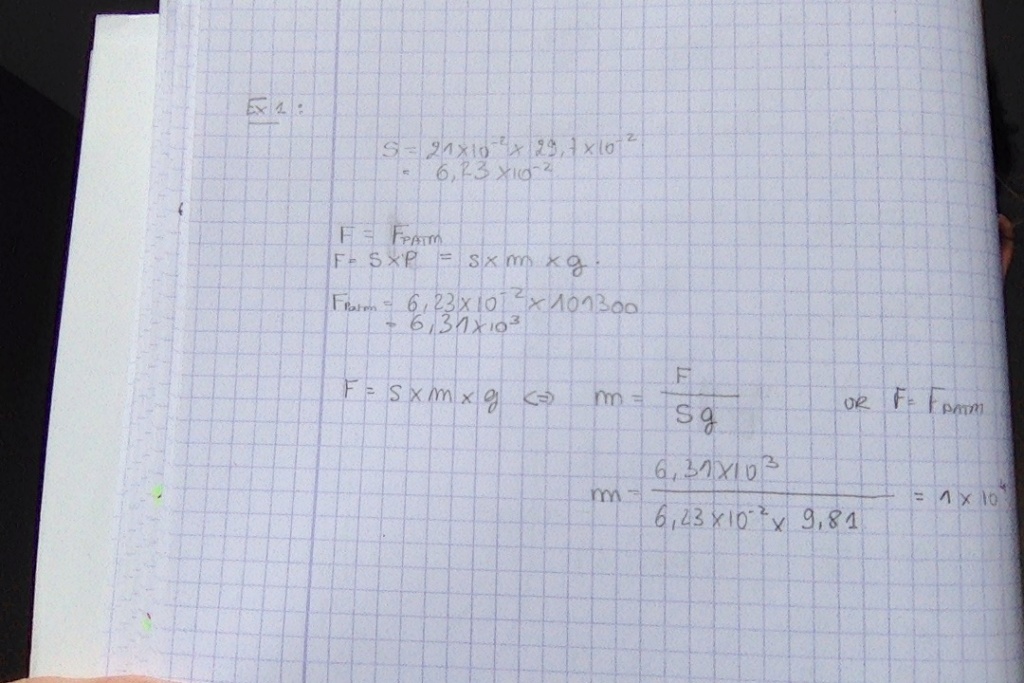 Ex 1 :
S = 21×10⁻² × 29,7×10⁻²
= 6,23×10⁻²
F = F_PATM
F = S×P = S×m×g.
F_Patm = 6,23×10⁻²×101300
= 6,31×10³
F = S×m×g ⇔ m = F / Sg OR F = F_PATM
m = 6,31×10³ / 6,23×10⁻² × 9,81 = 1×10⁴